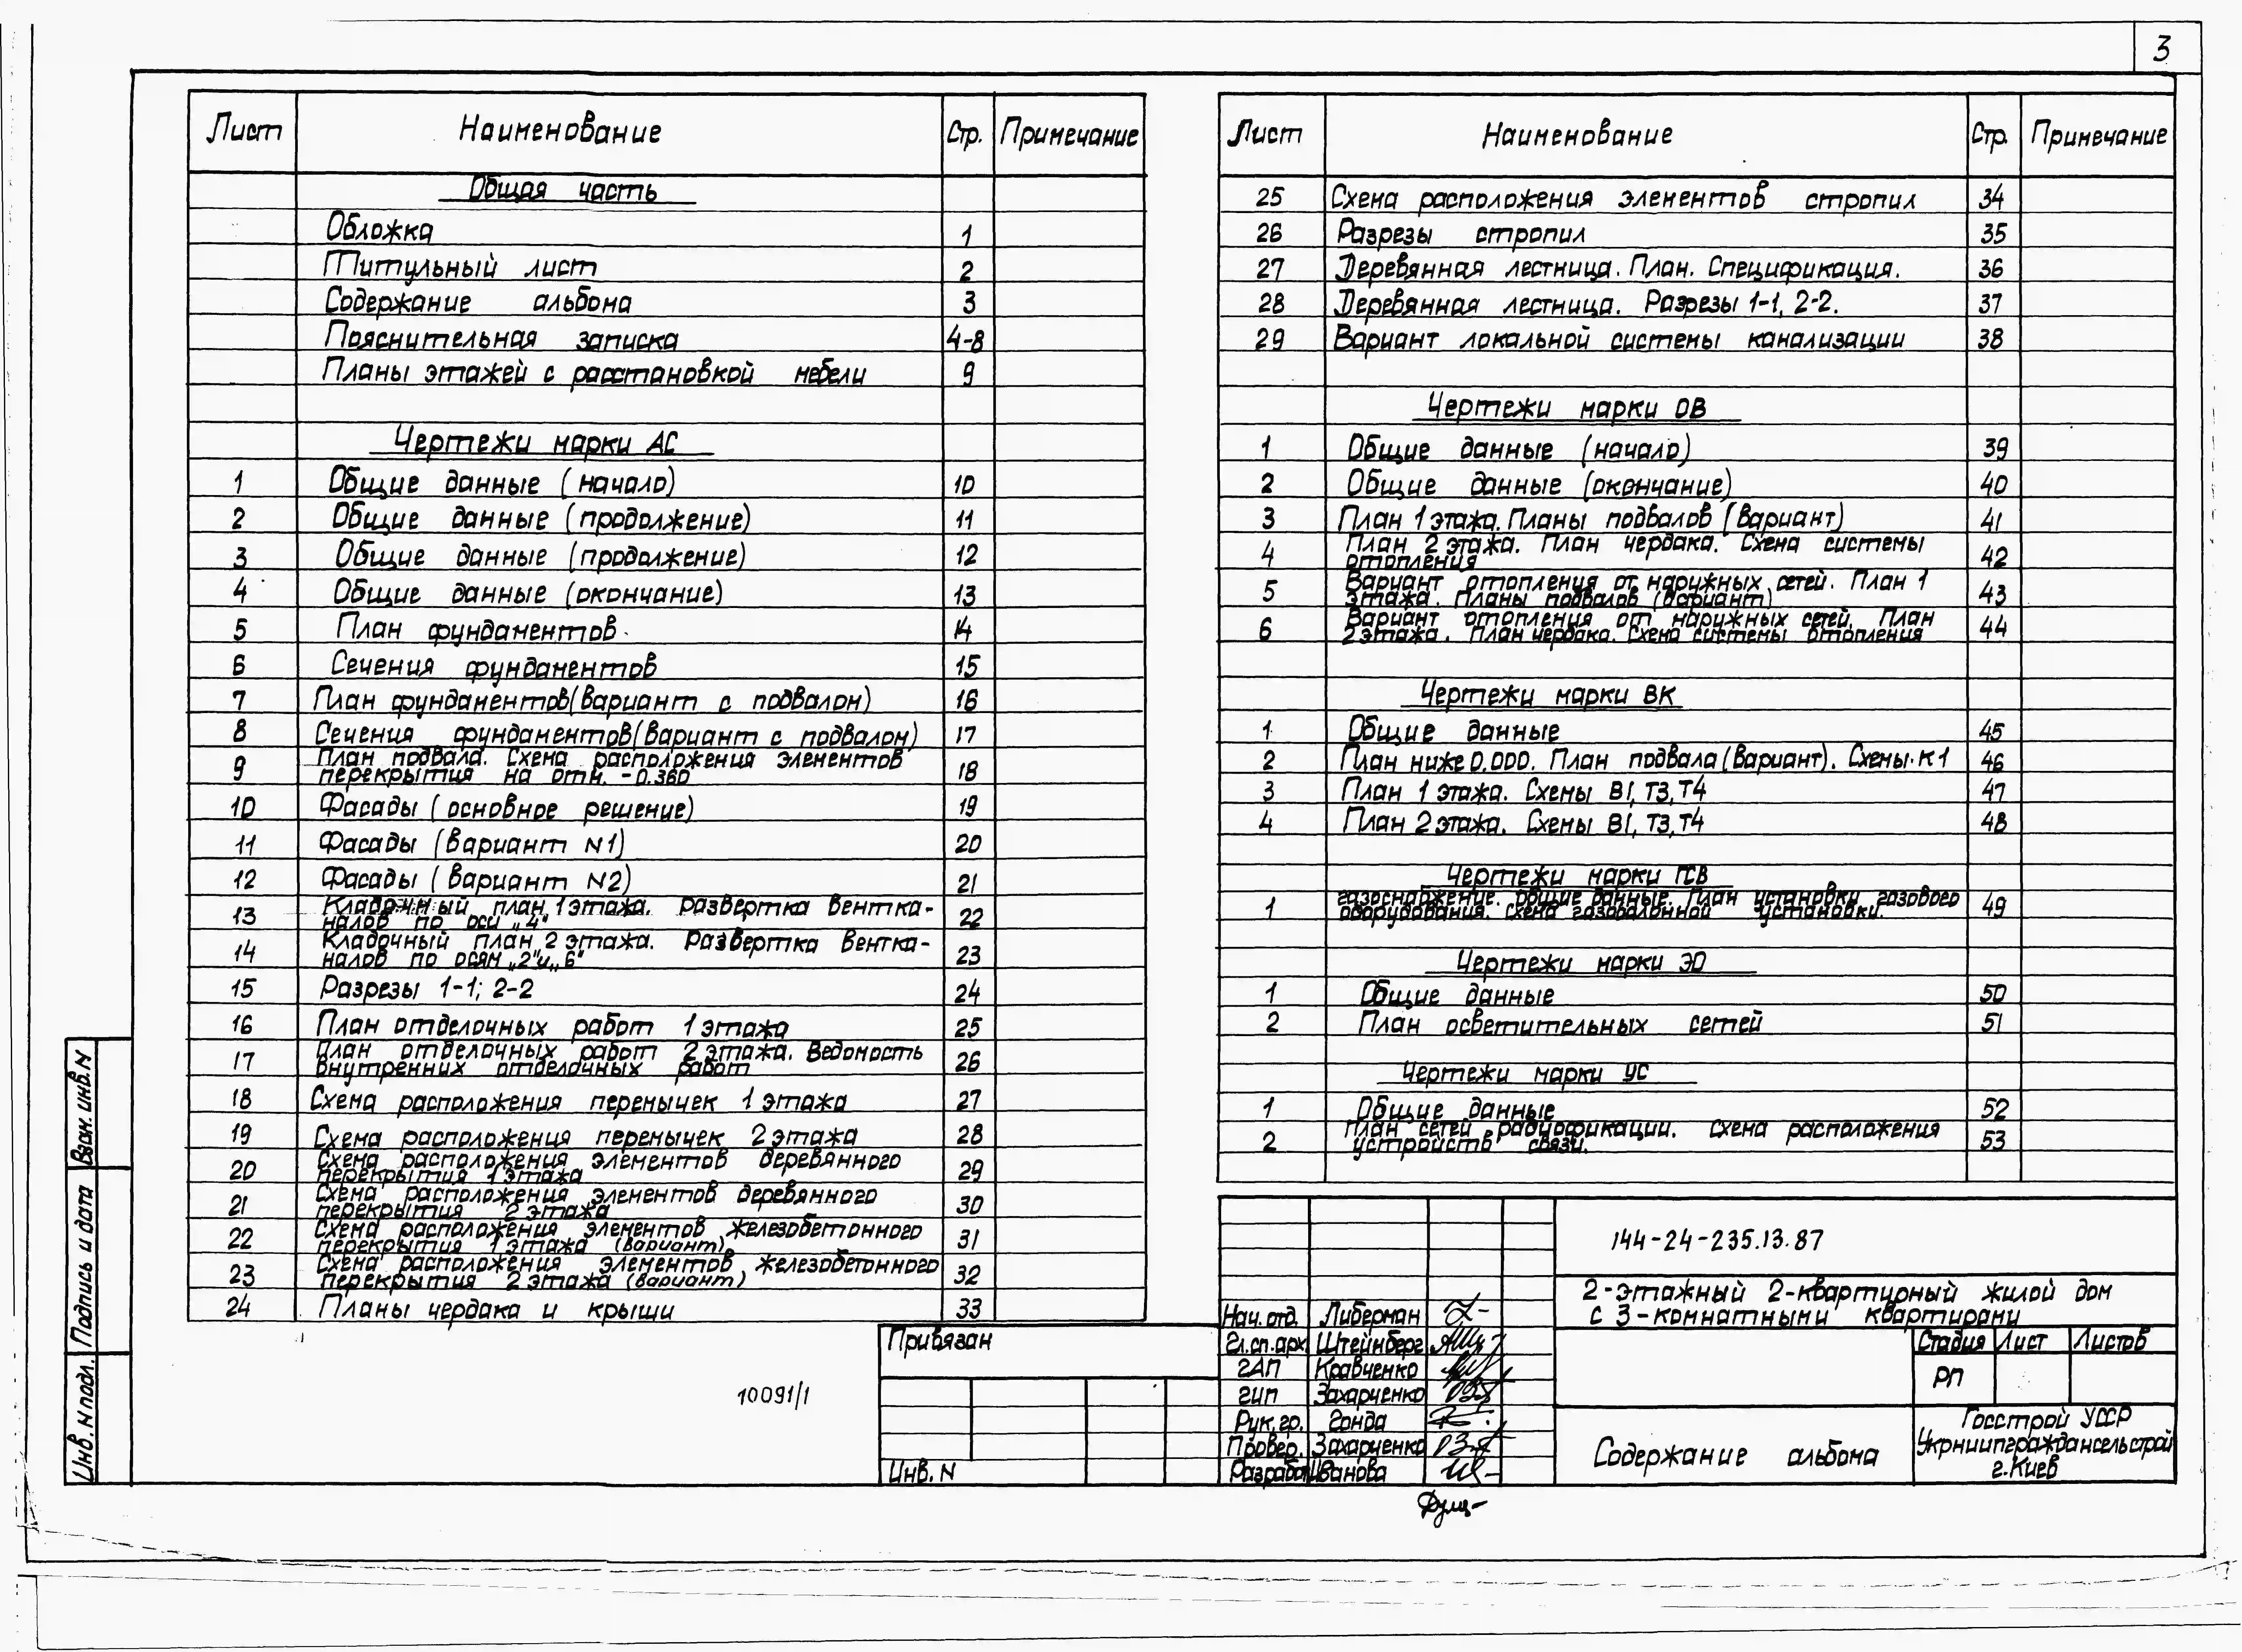 3
Лист Наименование Стр. Примечание
Общая часть
Обложка 1
Титульный лист 2
Содержание альбома 3
Пояснительная записка 4-8
Планы этажей с расстановкой мебели 9
Чертежи марки АС
1 Общие данные (начало) 10
2 Общие данные (продолжение) 11
3 Общие данные (продолжение) 12
4 Общие данные (окончание) 13
5 План фундаментов 14
6 Сечения фундаментов 15
7 План фундаментов (вариант с подвалом) 16
8 Сечения фундаментов (вариант с подвалом) 17
9 План подвала. Схема расположения элементов
перекрытия на отм. -0.360 18
10 Фасады (основное решение) 19
11 Фасады (вариант N1) 20
12 Фасады (вариант N2) 21
13 Кладочный план 1 этажа. Развертка вентка-
налов по оси „4" 22
14 Кладочный план 2 этажа. Развертка вентка-
налов по осям „2" и „6" 23
15 Разрезы 1-1; 2-2 24
16 План отделочных работ 1 этажа 25
17 План отделочных работ 2 этажа. Ведомость
внутренних отделочных работ 26
18 Схема расположения перемычек 1 этажа 27
19 Схема расположения перемычек 2 этажа 28
20 Схема расположения элементов деревянного
перекрытия 1 этажа 29
21 Схема расположения элементов деревянного
перекрытия 2 этажа 30
22 Схема расположения элементов железобетонного
перекрытия 1 этажа (вариант) 31
23 Схема расположения элементов железобетонного
перекрытия 2 этажа (вариант) 32
24 Планы чердака и крыши 33
Лист Наименование Стр. Примечание
25 Схема расположения элементов стропил 34
26 Разрезы стропил 35
27 Деревянная лестница. План. Спецификация. 36
28 Деревянная лестница. Разрезы 1-1, 2-2. 37
29 Вариант локальной системы канализации 38
Чертежи марки ОВ
1 Общие данные (начало) 39
2 Общие данные (окончание) 40
3 План 1 этажа. Планы подвалов (вариант) 41
4 План 2 этажа. План чердака. Схема системы
отопления 42
5 Вариант отопления от наружных сетей. План 1
этажа. Планы подвалов (вариант) 43
6 Вариант отопления от наружных сетей. План
2 этажа. План чердака. Схема системы отопления 44
Чертежи марки ВК
1 Общие данные 45
2 План ниже 0.000. План подвала (вариант). Схемы К1 46
3 План 1 этажа. Схемы В1, Т3, Т4 47
4 План 2 этажа. Схемы В1, Т3, Т4 48
Чертежи марки ГСВ
1 Газоснабжение. Общие данные. План установки газового
оборудования. Схема газобалонной установки. 49
Чертежи марки ЭО
1 Общие данные 50
2 План осветительных сетей 51
Чертежи марки УС
1 Общие данные 52
2 План сетей радиофикации. Схема расположения
устройств связи. 53
144-24-235.13.87
2-этажный 2-квартирный жилой дом
с 3-комнатными квартирами
Нач. отд. Либерман
Гл.сп.арх Штейнберг
ГАП Кравченко
ГИП Захарченко
Рук. гр. Гонда
Провер. Захарченко
Разработ Иванова
Стадия Лист Листов
РП
Содержание альбома
Госстрой УССР
Укрниипграждансельстрой
г. Киев
Привязан
Инв. N
10091/1
Взам. инв. N
Подпись и дата
Инв. N подл.